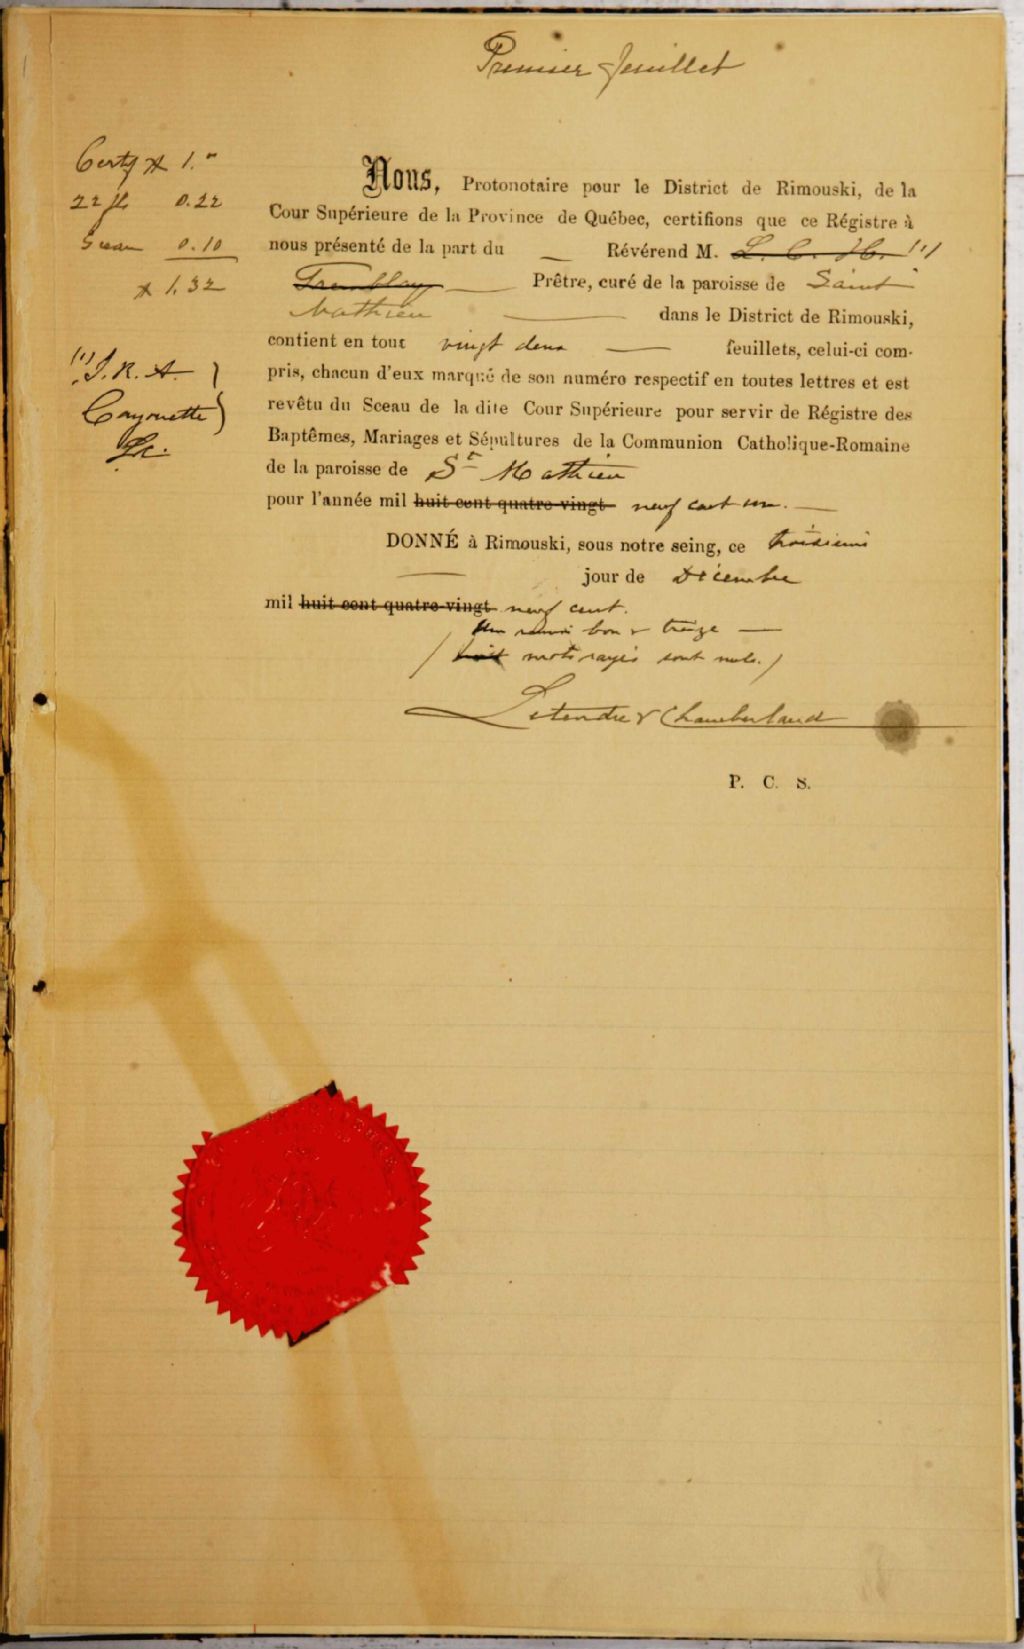 Premier feuillet
Certif 1.00
22 fl 0.22
Sceau 0.10
1.32
(1) J. R. A.
Cayouette
Nous, Protonotaire pour le District de Rimouski, de la
Cour Supérieure de la Province de Québec, certifions que ce Régistre à
nous présenté de la part du — Révérend M. L. C. H. (1)
Tremblay — Prêtre, curé de la paroisse de Saint
Mathieu — dans le District de Rimouski,
contient en tout vingt deux — feuillets, celui-ci com-
pris, chacun d'eux marqué de son numéro respectif en toutes lettres et est
revêtu du Sceau de la dite Cour Supérieure pour servir de Régistre des
Baptêmes, Mariages et Sépultures de la Communion Catholique-Romaine
de la paroisse de St Mathieu
pour l'année mil huit cent quatre-vingt neuf cent un. —
DONNÉ à Rimouski, sous notre seing, ce troisième
— jour de Décembre
mil huit cent quatre-vingt neuf cent.
Un renvoi bon & treize —
/ huit mots rayés sont nuls. /
Letendre & Chamberland
P. C. S.